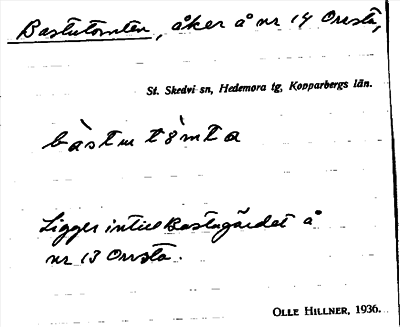 Bastutomten, åker å nr 14 Onsta,
St. Skedvi sn, Hedemora tg, Kopparbergs län.
bàstut8̀mta
Ligger intill Bastugärdet å
nr 13 Onsta.
OLLE HILLNER, 1936.